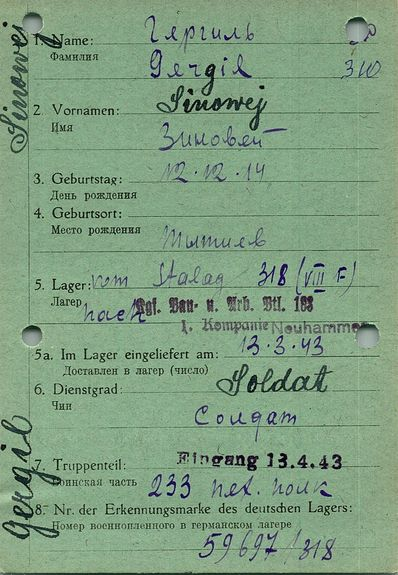 Гергиль
1. Name: Gergil
Фамилия
310
2. Vornamen: Sinowej
Имя
Зиновей
3. Geburtstag: 12.12.14
День рождения
4. Geburtsort:
Место рождения
5. Lager: vom Stalag 318 (VIII F)
Лагерь
nach Kgf. Bau- u. Arb. Btl. 188
1. Kompanie Neuhammer
5a. Im Lager eingeliefert am: 13.3.43
Доставлен в лагерь (число)
6. Dienstgrad: Soldat
Чин
Солдат
7. Truppenteil: Eingang 13.4.43
Воинская часть 233 пех. полк
8. Nr. der Erkennungsmarke des deutschen Lagers:
Номер военнопленного в германском лагере
59697/318
Sinowej
Gergil